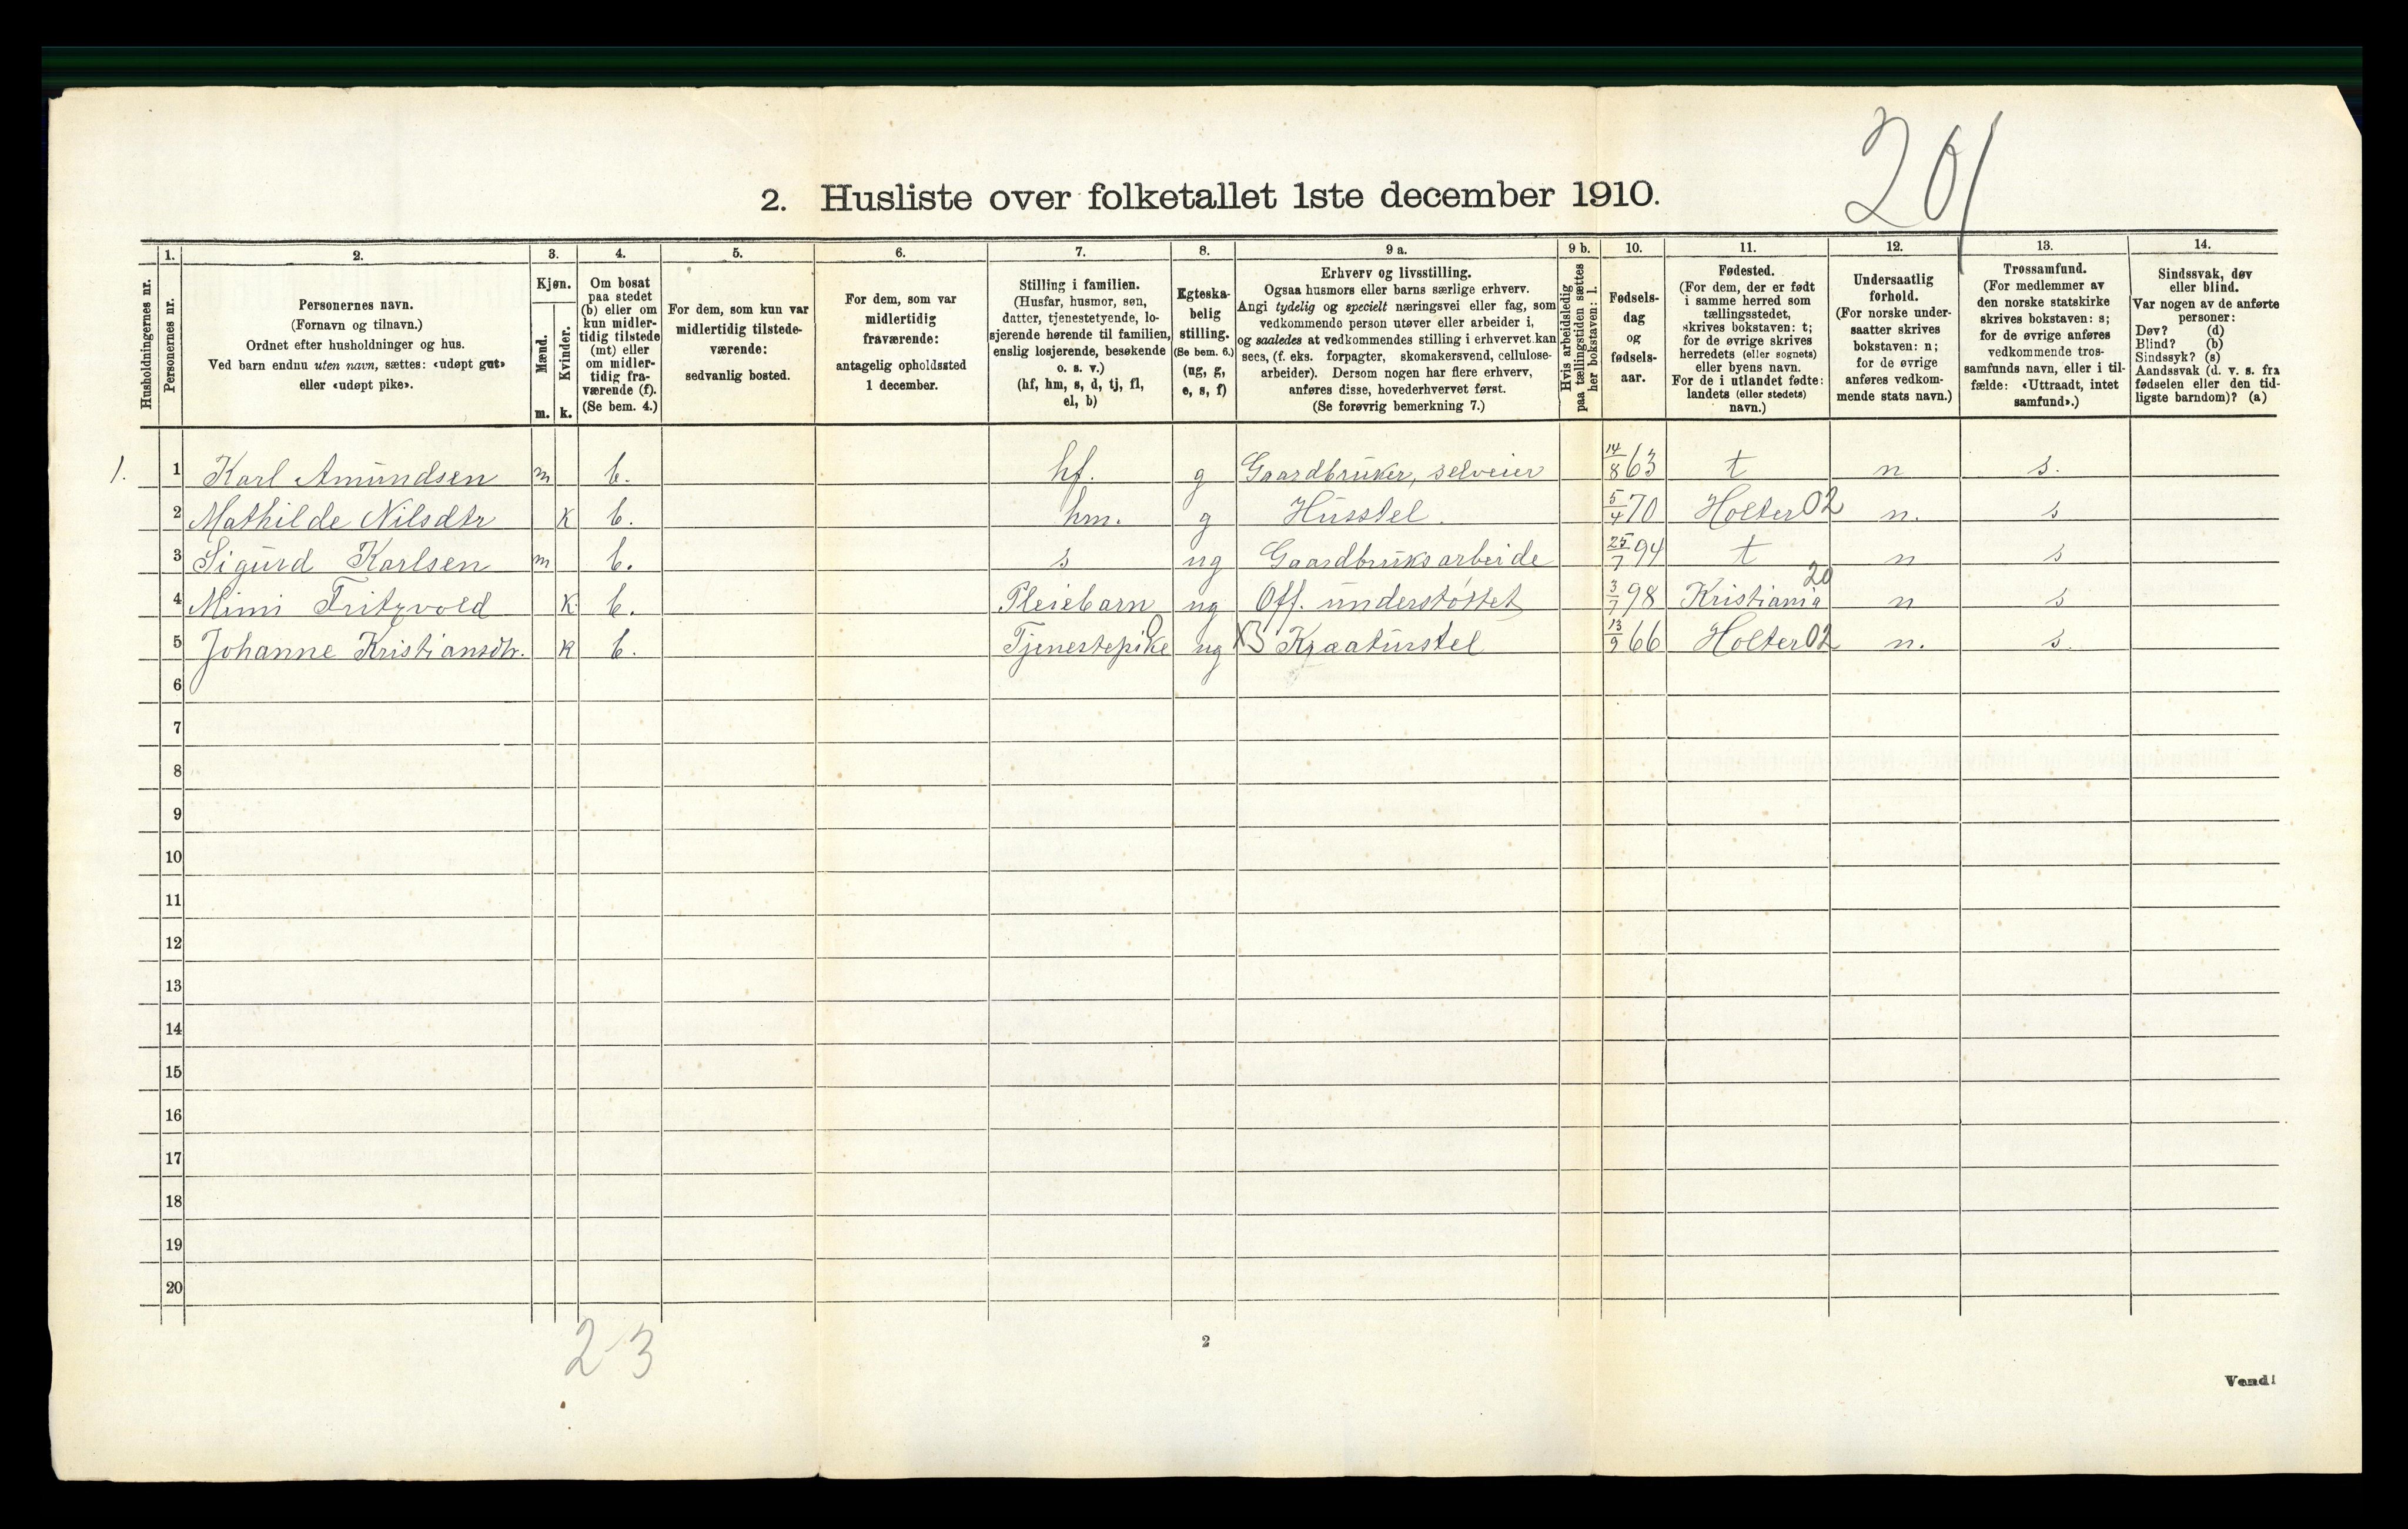 201
2. Husliste over folketallet 1ste december 1910.
Husholdningernes nr.
1. Personernes nr.
2. Personernes navn. (Fornavn og tilnavn.) Ordnet efter husholdninger og hus. Ved barn endnu uten navn, sættes: «udøpt gut» eller «udøpt pike».
3. Kjøn. Mænd. m. Kvinder. k.
4. Om bosat paa stedet (b) eller om kun midlertidig tilstede (mt) eller om midlertidig fraværende (f). (Se bem. 4.)
5. For dem, som kun var midlertidig tilstedeværende: sedvanlig bosted.
6. For dem, som var midlertidig fraværende: antagelig opholdssted 1 december.
7. Stilling i familien. (Husfar, husmor, søn, datter, tjenestetyende, losjerende hørende til familien, enslig losjerende, besøkende o. s. v.) (hf, hm, s, d, tj, fl, el, b)
8. Egteskabelig stilling. (Se bem. 6.) (ug, g, e, s, f)
9 a. Erhverv og livsstilling. Ogsaa husmors eller barns særlige erhverv. Angi tydelig og specielt næringsvei eller fag, som vedkommende person utøver eller arbeider i, og saaledes at vedkommendes stilling i erhvervet kan sees, (f. eks. forpagter, skomakersvend, cellulosearbeider). Dersom nogen har flere erhverv, anføres disse, hovederhvervet først. (Se forøvrig bemerkning 7.)
9 b. Hvis arbeidsledig paa tællingstiden sættes her bokstaven: l.
10. Fødselsdag og fødselsaar.
11. Fødested. (For dem, der er født i samme herred som tællingsstedet, skrives bokstaven: t; for de øvrige skrives herredets (eller sognets) eller byens navn. For de i utlandet fødte: landets (eller stedets) navn.)
12. Undersaatlig forhold. (For norske undersaatter skrives bokstaven: n; for de øvrige anføres vedkommende stats navn.)
13. Trossamfund. (For medlemmer av den norske statskirke skrives bokstaven: s; for de øvrige anføres vedkommende trossamfunds navn, eller i tilfælde: «Uttraadt, intet samfund».)
14. Sindssvak, døv eller blind. Var nogen av de anførte personer: Døv? (d) Blind? (b) Sindssyk? (s) Aandssvak (d. v. s. fra fødselen eller den tidligste barndom)? (a)
1. 1 Karl Amundsen m b. hf. g Gaardbruker, selveier 14/8 63 t n s.
2 Mathilde Nilsdtr k b. hm. g Husstel. 5/4 70 Holter 02 n. s
3 Sigurd Karlsen m b. s ug Gaardbruksarbeide 25/7 94 t n s
4 Mimi Fritzvold k b. Pleiebarn ug Off. understøttet 3/7 98 Kristiania 20 n s
5 Johanne Kristiansdtr. k b. Tjenestepike 0 ug Kreaturstel 13/9 66 Holter 02 n. s.
6
7
8
9
10
11
12
13
14
15
16
17
18
19
20
2-3
2
Vend!